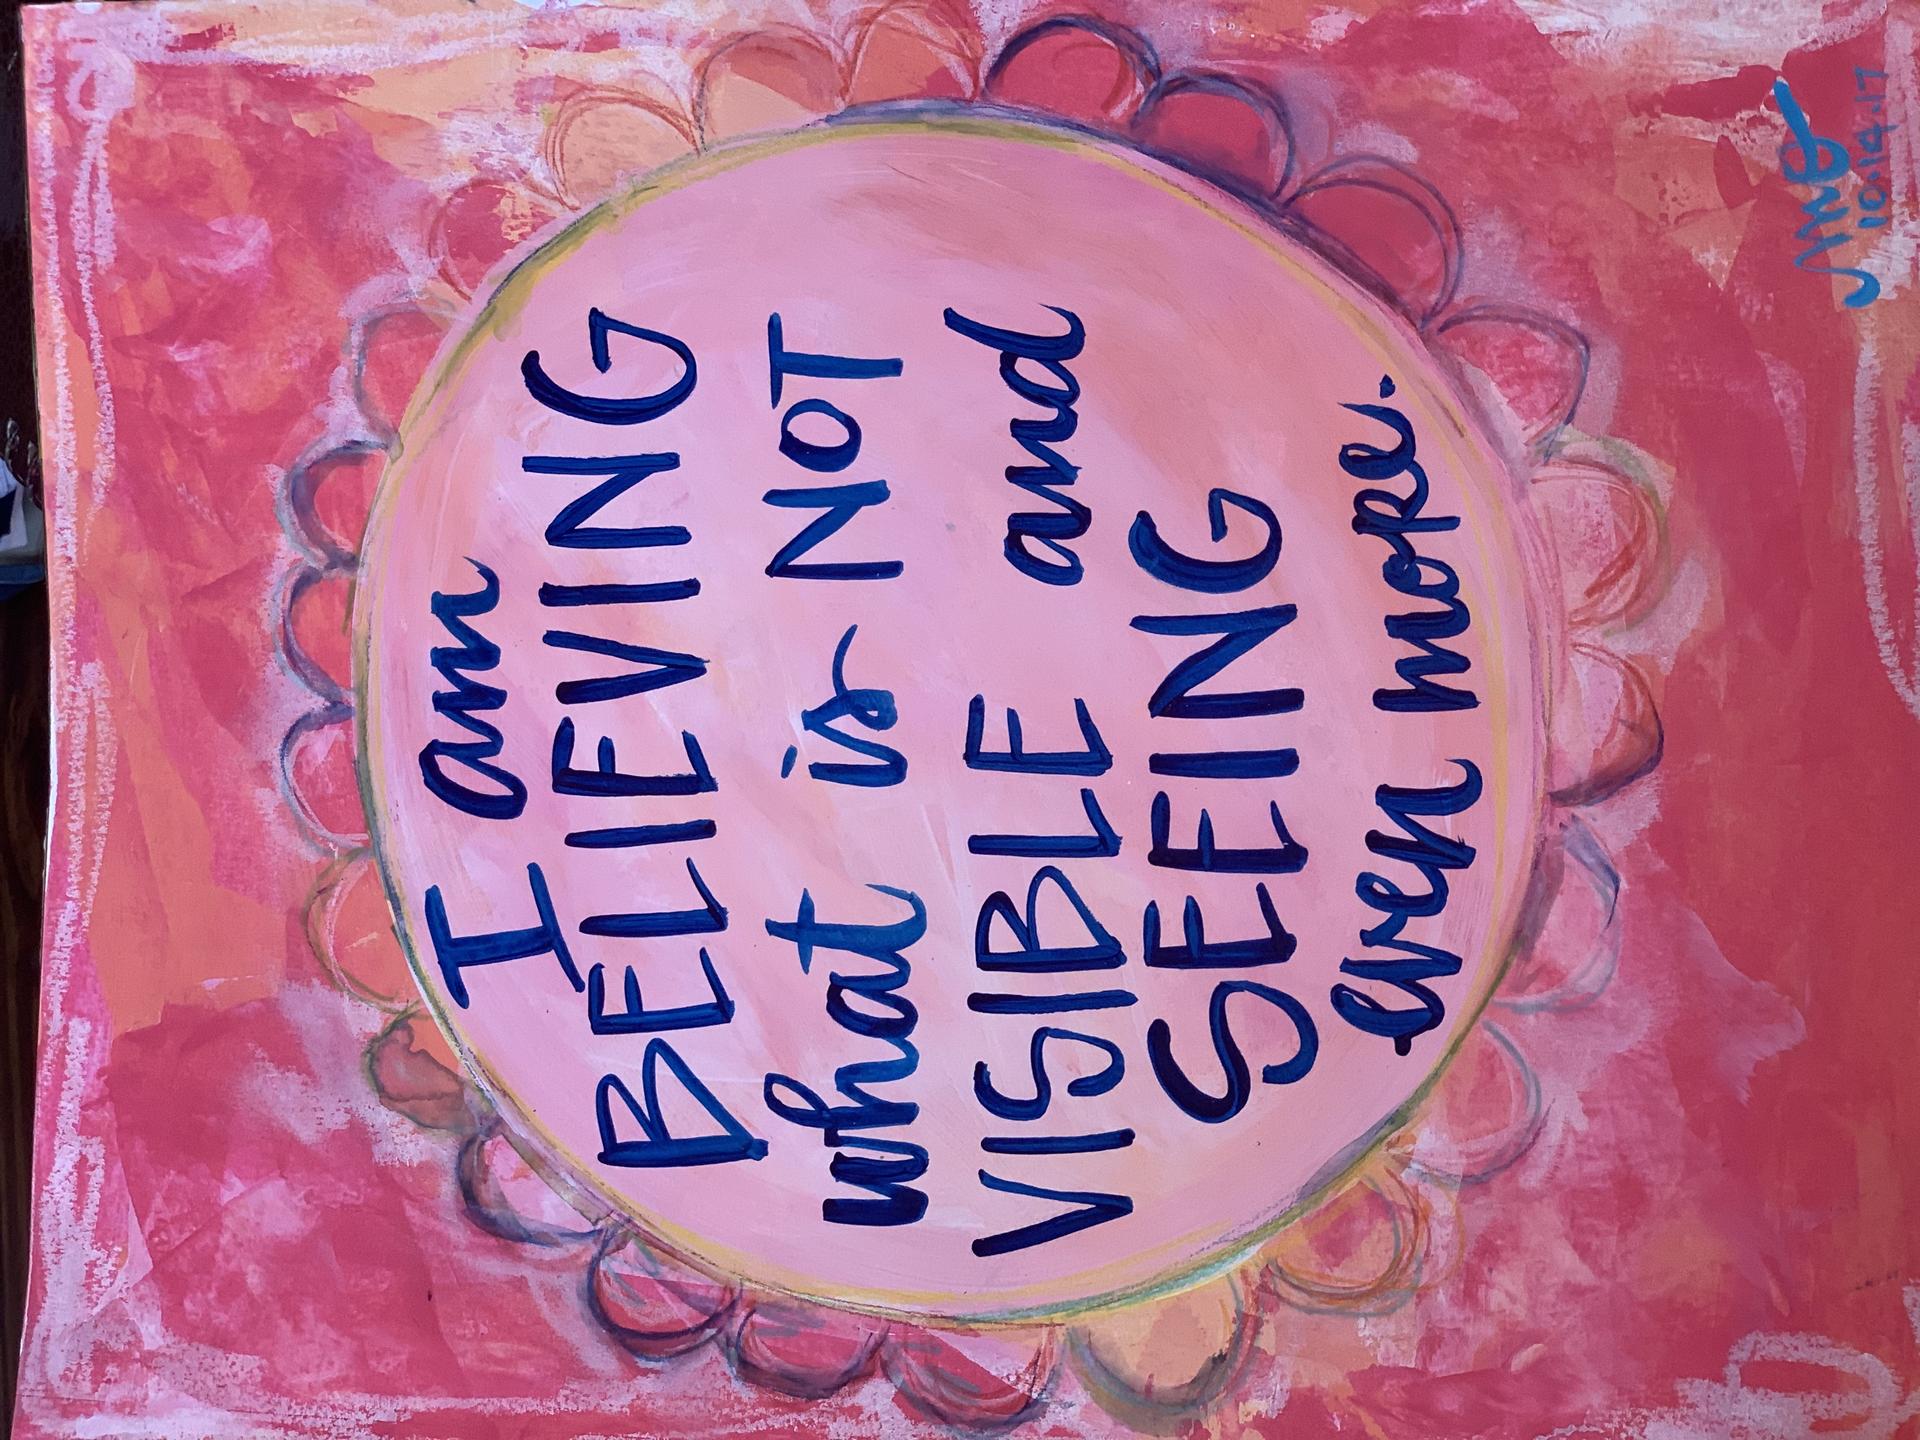 I am
BELIEVING
what is NOT
VISIBLE and
SEEING
even more.
10.14.17